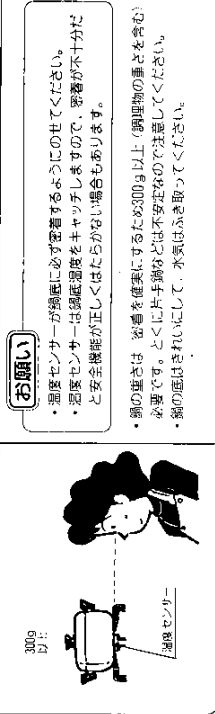 お願い
・温度センサーが鍋底に必ず密着するようにのせてください。
・温度センサーは鍋底温度をキャッチしますので、密着が不十分だ
と安全機能が正しくはたらかない場合もあります。
・鍋の重さは、密着を確実にするため300g以上(調理物の重さを含む)
必要です。とくに片手鍋などは不安定なので注意してください。
・鍋の底はきれいにして、水気はふき取ってください。
300g
以上
温度センサー